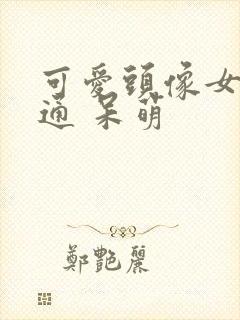 可愛頭像女
通 呆萌
鄭艷麗